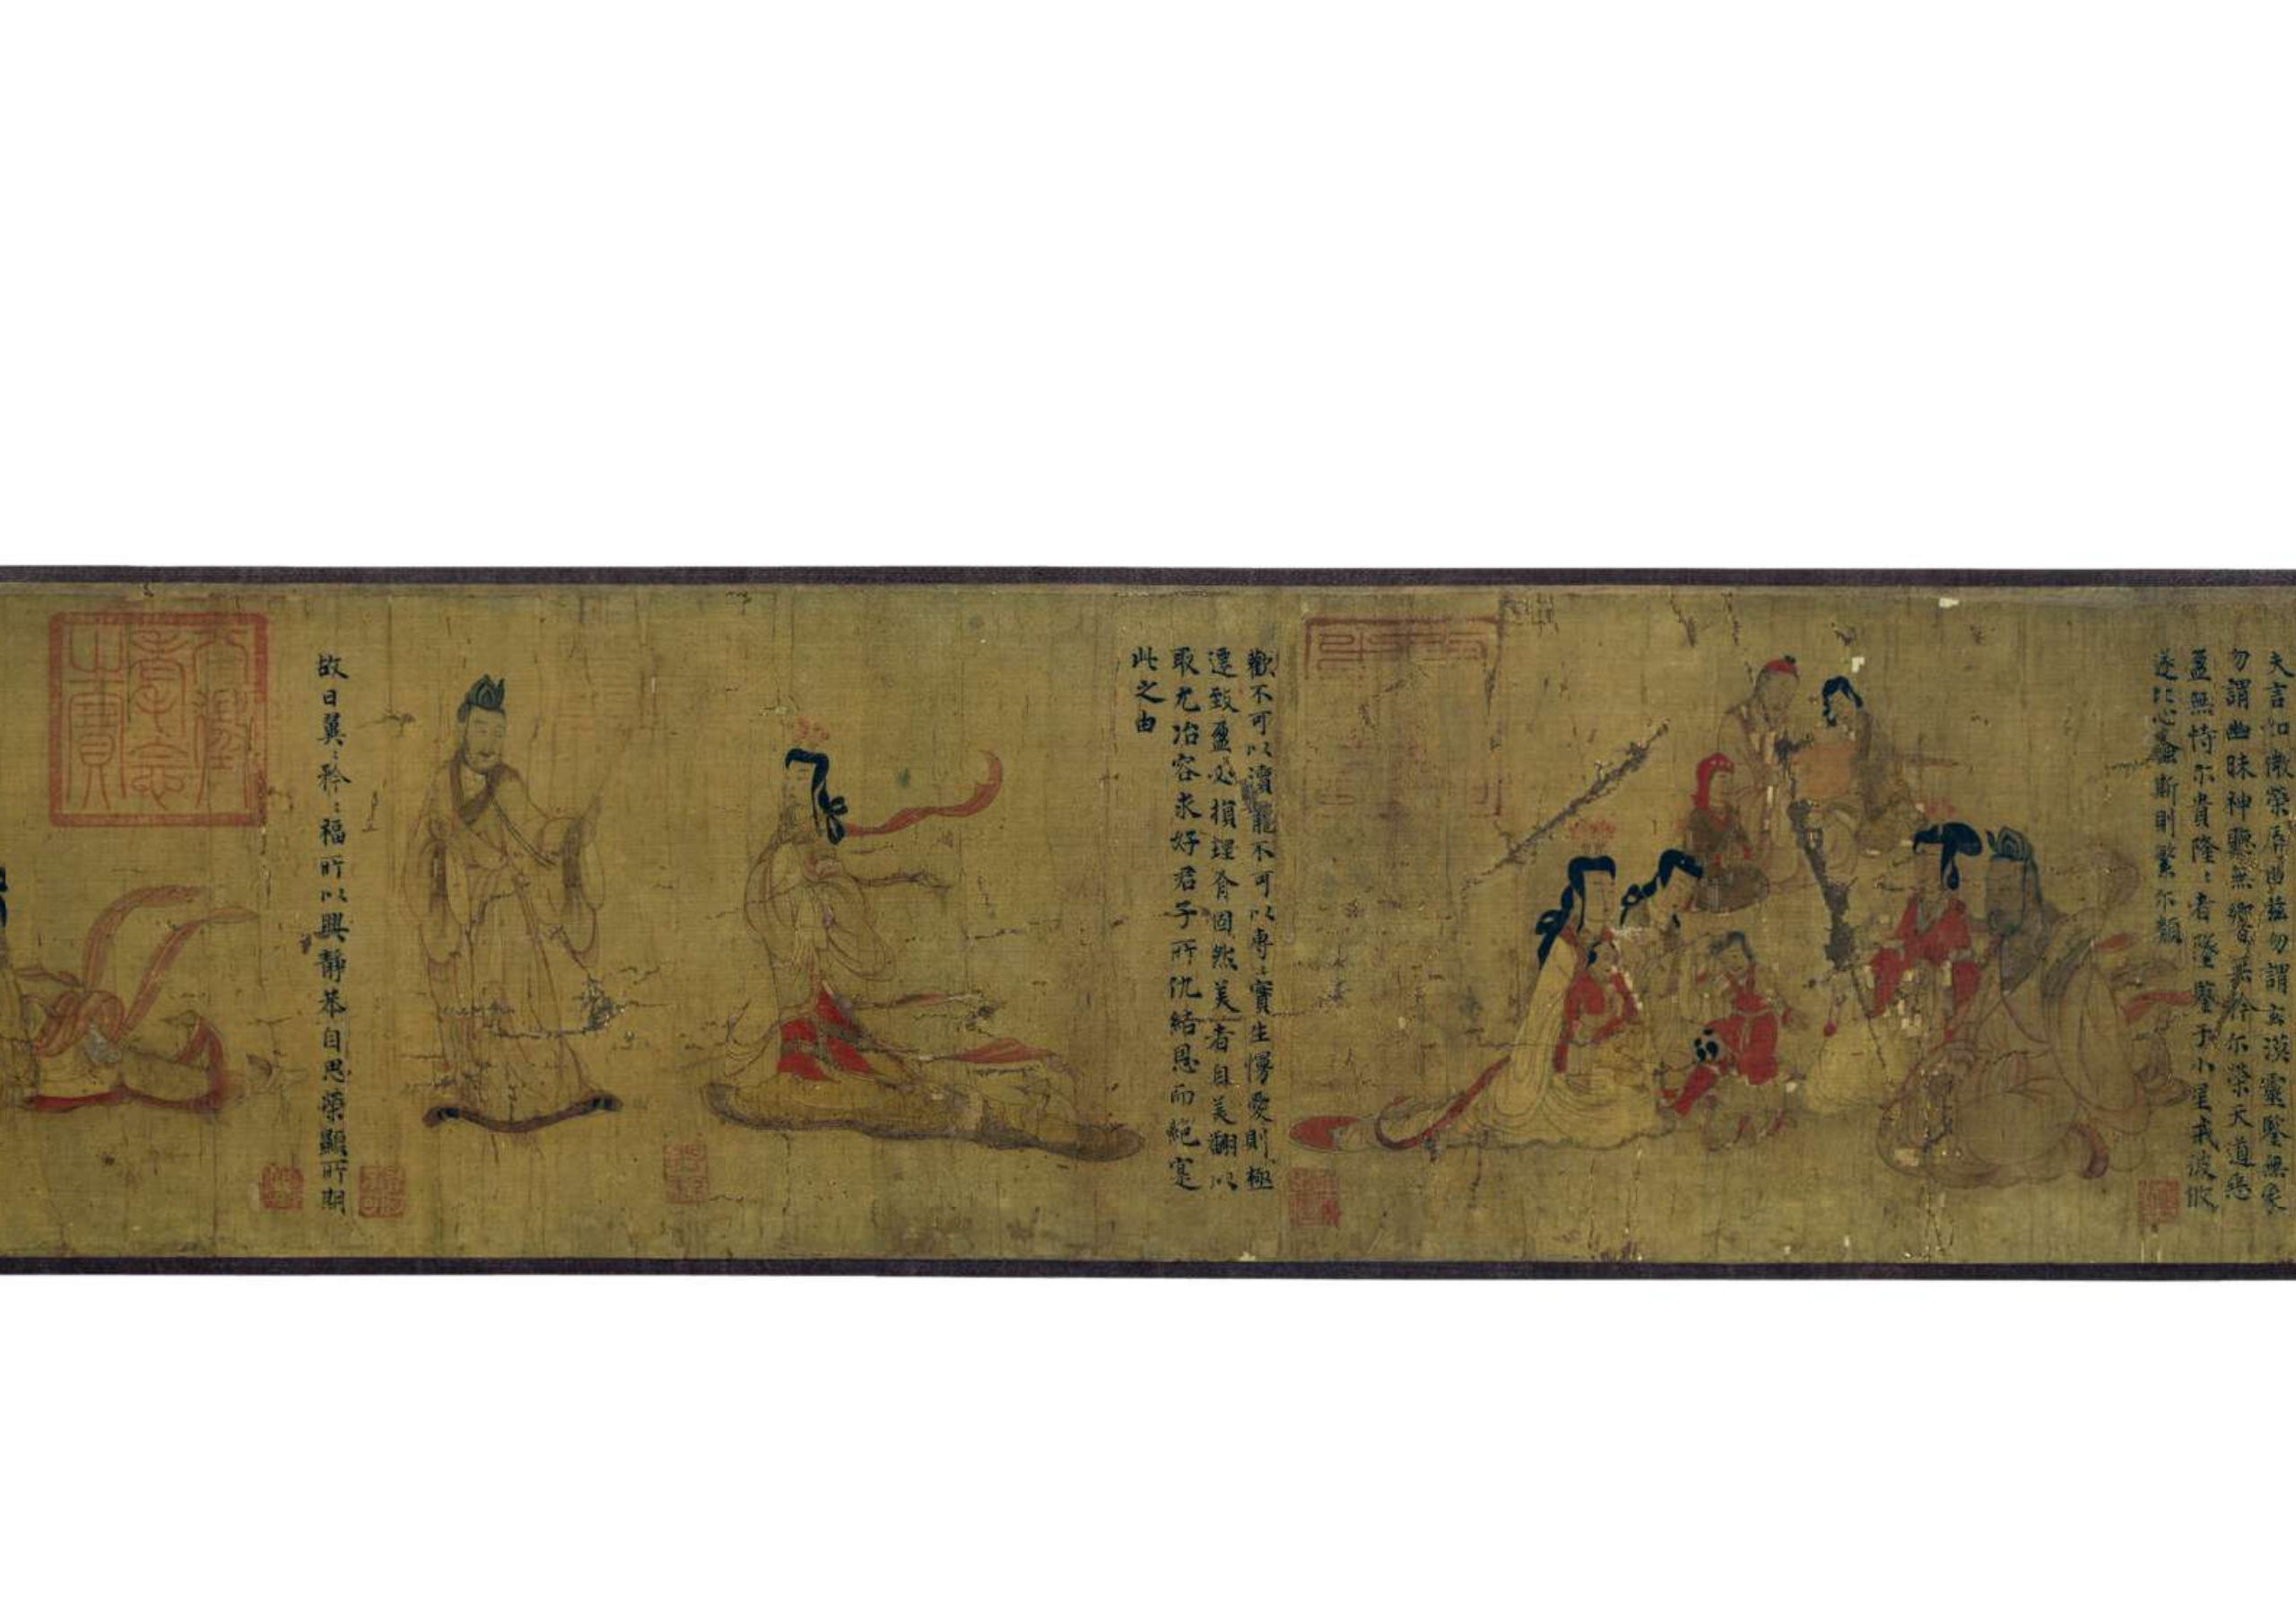 夫言如微榮辱由茲勿謂玄漠靈鑒無象
勿謂幽昧神聽無響無矜尓榮天道惡
盈無恃尓貴隆〻者墜鑒于小星戒彼攸
遂比心螽斯則繁尓類
歡不可以瀆寵不可以專〻實生慢愛則極
遷致盈必損理有固然美者自美翩以
取尤冶容求好君子所仇結恩而絕寔
此之由
故曰翼〻矜〻福所以興靜恭自思榮顯所期
八徵
耄念
之寶